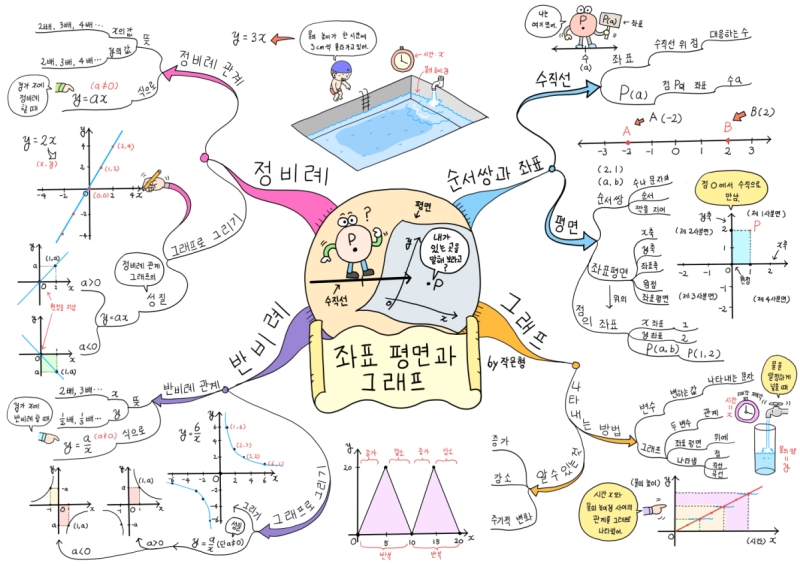 좌표 평면과
그래프
by 작은형
?
P
평면
수직선
y
x
0
내가
있는 곳을
말해 보라고
?
P
순서쌍과 좌표
수직선
나는
여기 있어.
P
P(a)
좌표
수
(a)
좌표
수직선 위 점
대응하는 수
P(a)
점 P의 좌표
수 a
A(-2)
B(2)
A
B
-3 -2 -1 0 1 2 3
평면
순서쌍
(2,1)
(a,b)
수나 문자로
순서
짝을 지어
좌표평면
x축
y축
좌표축
원점
좌표평면
위의
점의 좌표
x 좌표 1
y 좌표 2
P(a,b) P(1,2)
점 O에서 수직으로
만남
y축
(제 1사분면)
(제 2사분면)
P
x축
원점
(제 3사분면)
(제 4사분면)
-2 0 2
2
-2
그래프
나타내는 방법
변수
변하는 값
나타내는 문자
그래프
두 변수
관계
좌표평면
위에
나타냄
점
직선
곡선
시간
x
물을
일정하게
넣을 때
물의 양
y
알 수 있는 것
증가
감소
주기적 변화
(물의 높이)
(시간) x
시간 x와
물의 높이 y 사이의
관계를 그래프로
나타냈어.
y
20
증가 감소 증가 감소
0 5 10 15 20 x
반복 반복
반비례
반비례 관계
뜻
x
2배, 3배…
y
1/2배, 1/3배…
식으로
y=a/x (a≠0)
y가 x에
반비례 할 때
그래프로 그리기
그리기
y=6/x
(1,6)
(2,3)
(3,2)
(6,1)
성질
y=a/x (단 a≠0)
a>0
a<0
(1,a)
(1,a)
정비례
정비례 관계
뜻
x의 값
2배, 3배, 4배…
y의 값
2배, 3배, 4배…
식으로
(a≠0)
y=ax
y가 x에
정비례
할 때
y=3x
물의 높이가 한 시간에
3cm씩 올라가고 있어.
시간: x
물의 높이: y
그래프로 그리기
y=2x
(x, y)
(2,4)
(1,2)
(0,0)
-4 -2 2 4 x
정비례 관계
그래프의
성질
y=ax
a>0
a<0
(1,a)
원점을 지남
(1,a)